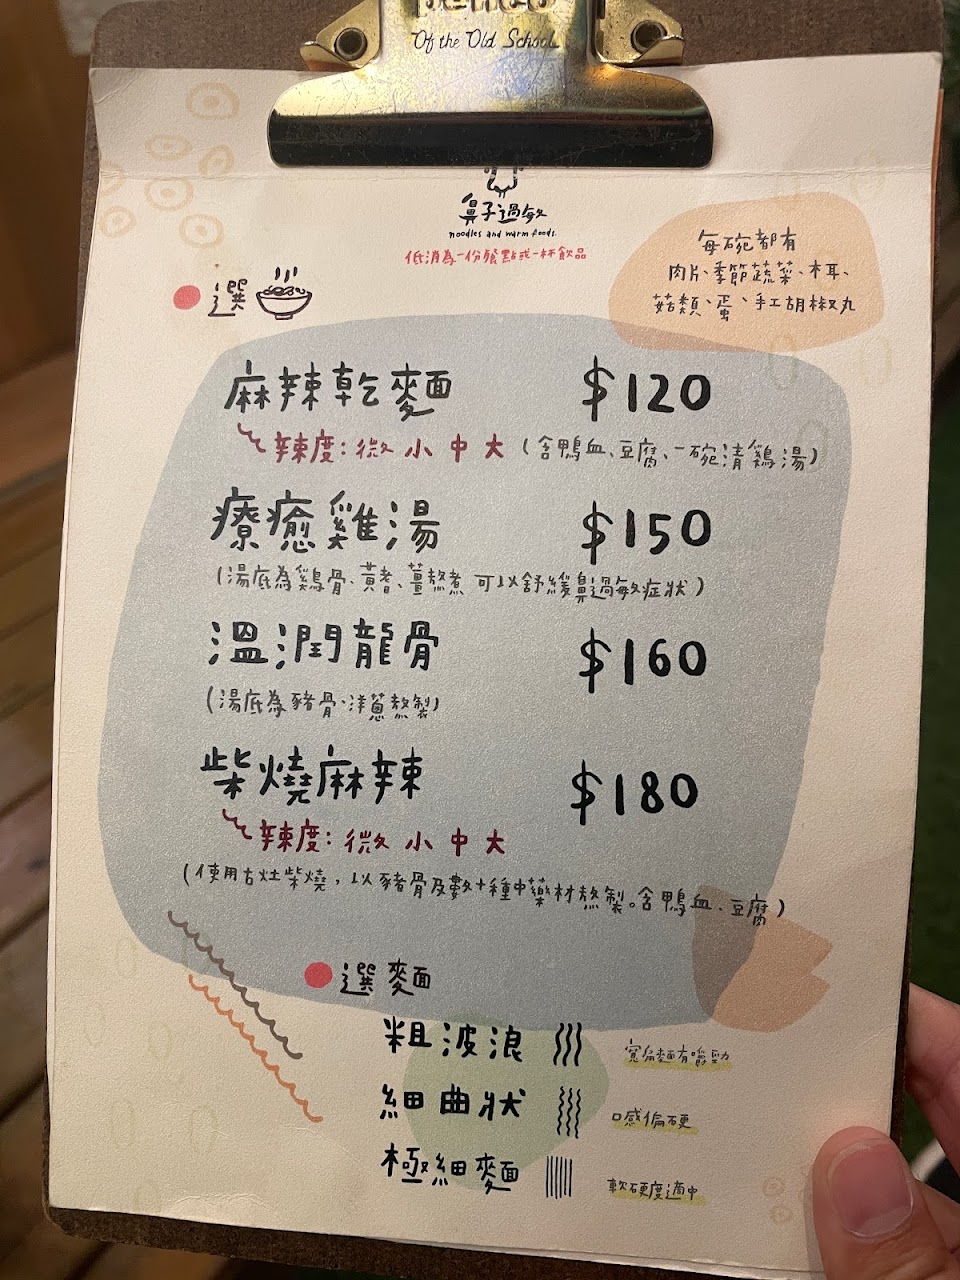 Of the Old School
鼻子過敏
noodles and warm foods.
低消為一份餐點或一杯飲品
每碗都有
肉片、季節蔬菜、木耳、
菇類、蛋、手工胡椒丸
選
麻辣乾麵 $120
辣度：微 小 中 大 (含鴨血、豆腐、一碗清鷄湯)
療癒雞湯 $150
(湯底為鷄骨、黃耆、薑熬煮 可以舒緩鼻過敏症狀)
溫潤龍骨 $160
(湯底為豬骨、洋蔥熬製)
柴燒麻辣 $180
辣度：微 小 中 大
(使用古灶柴燒，以豬骨及數十種中藥材熬製。含鴨血、豆腐)
選麵
粗波浪 寬扁麵有嚼勁
細曲狀 口感偏硬
極細麵 軟硬度適中